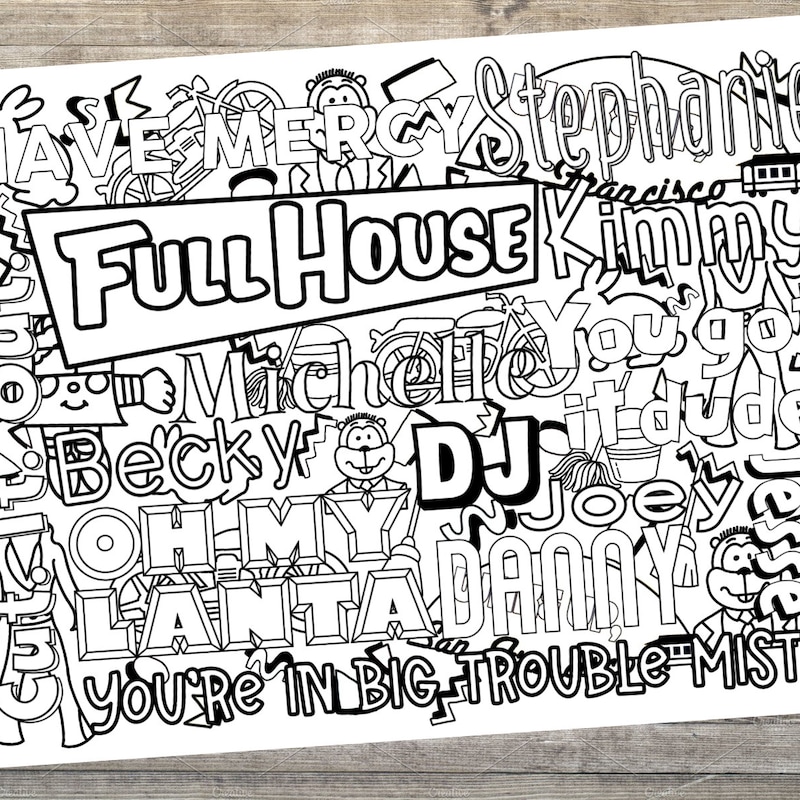 HAVE MERCY
Stephanie
Francisco
FULL HOUSE
Kimmy
You got
it dude
Michelle
Cut. It. Out.
Becky
DJ
Joey
Jesse
OH MY
LANTA
DANNY
YOU'Re IN BIG TROUBLe MIST